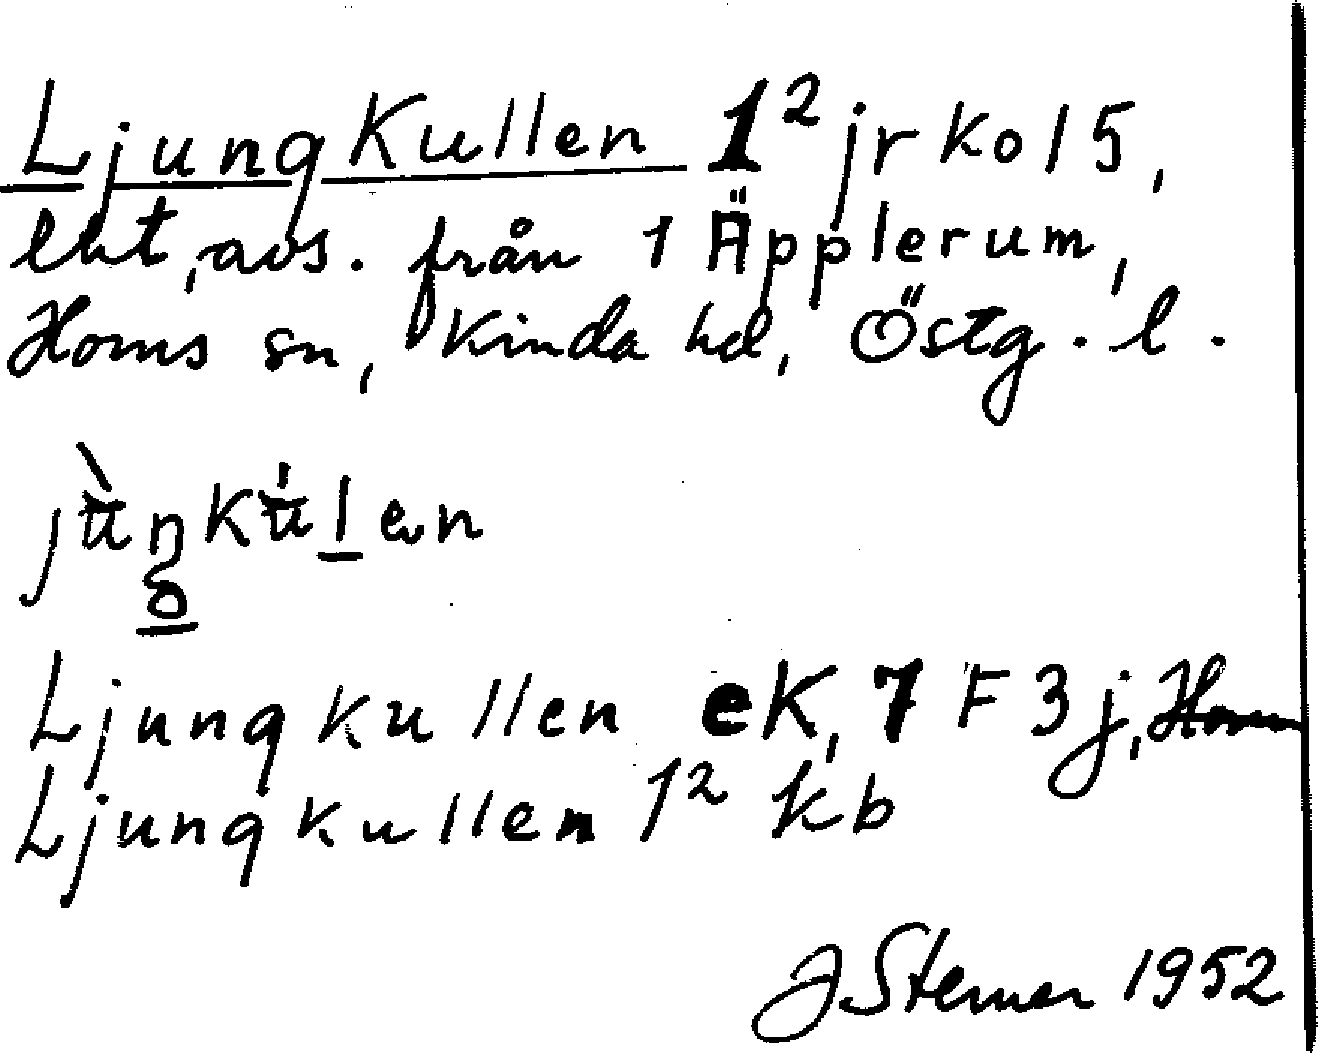 Ljungkullen 1² jrko 15,
lht, avs. från 1 Äpplerum,
Horns sn, Kinda hd, Östg. l.
Ljungkullen ek, 7 F 3 j, Horn
Ljungkullen 1² kb
J Sterner 1952